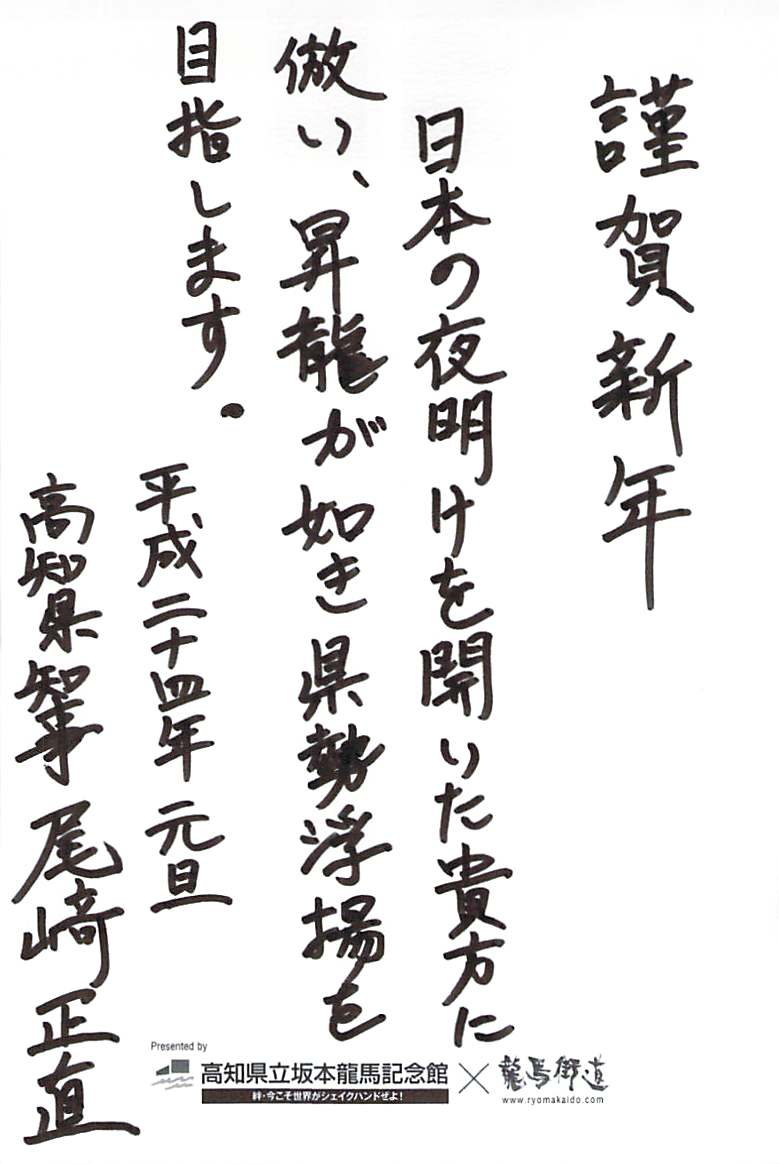 謹賀新年
日本の夜明けを開いた貴方に
倣い、昇龍が如き県勢浮揚を
目指します.
平成二十四年 元旦
高知県知事 尾﨑正直
Presented by
高知県立坂本龍馬記念館 × 龍馬街道
絆・今こそ世界がシェイクハンドぜよ!
www.ryomakaido.com